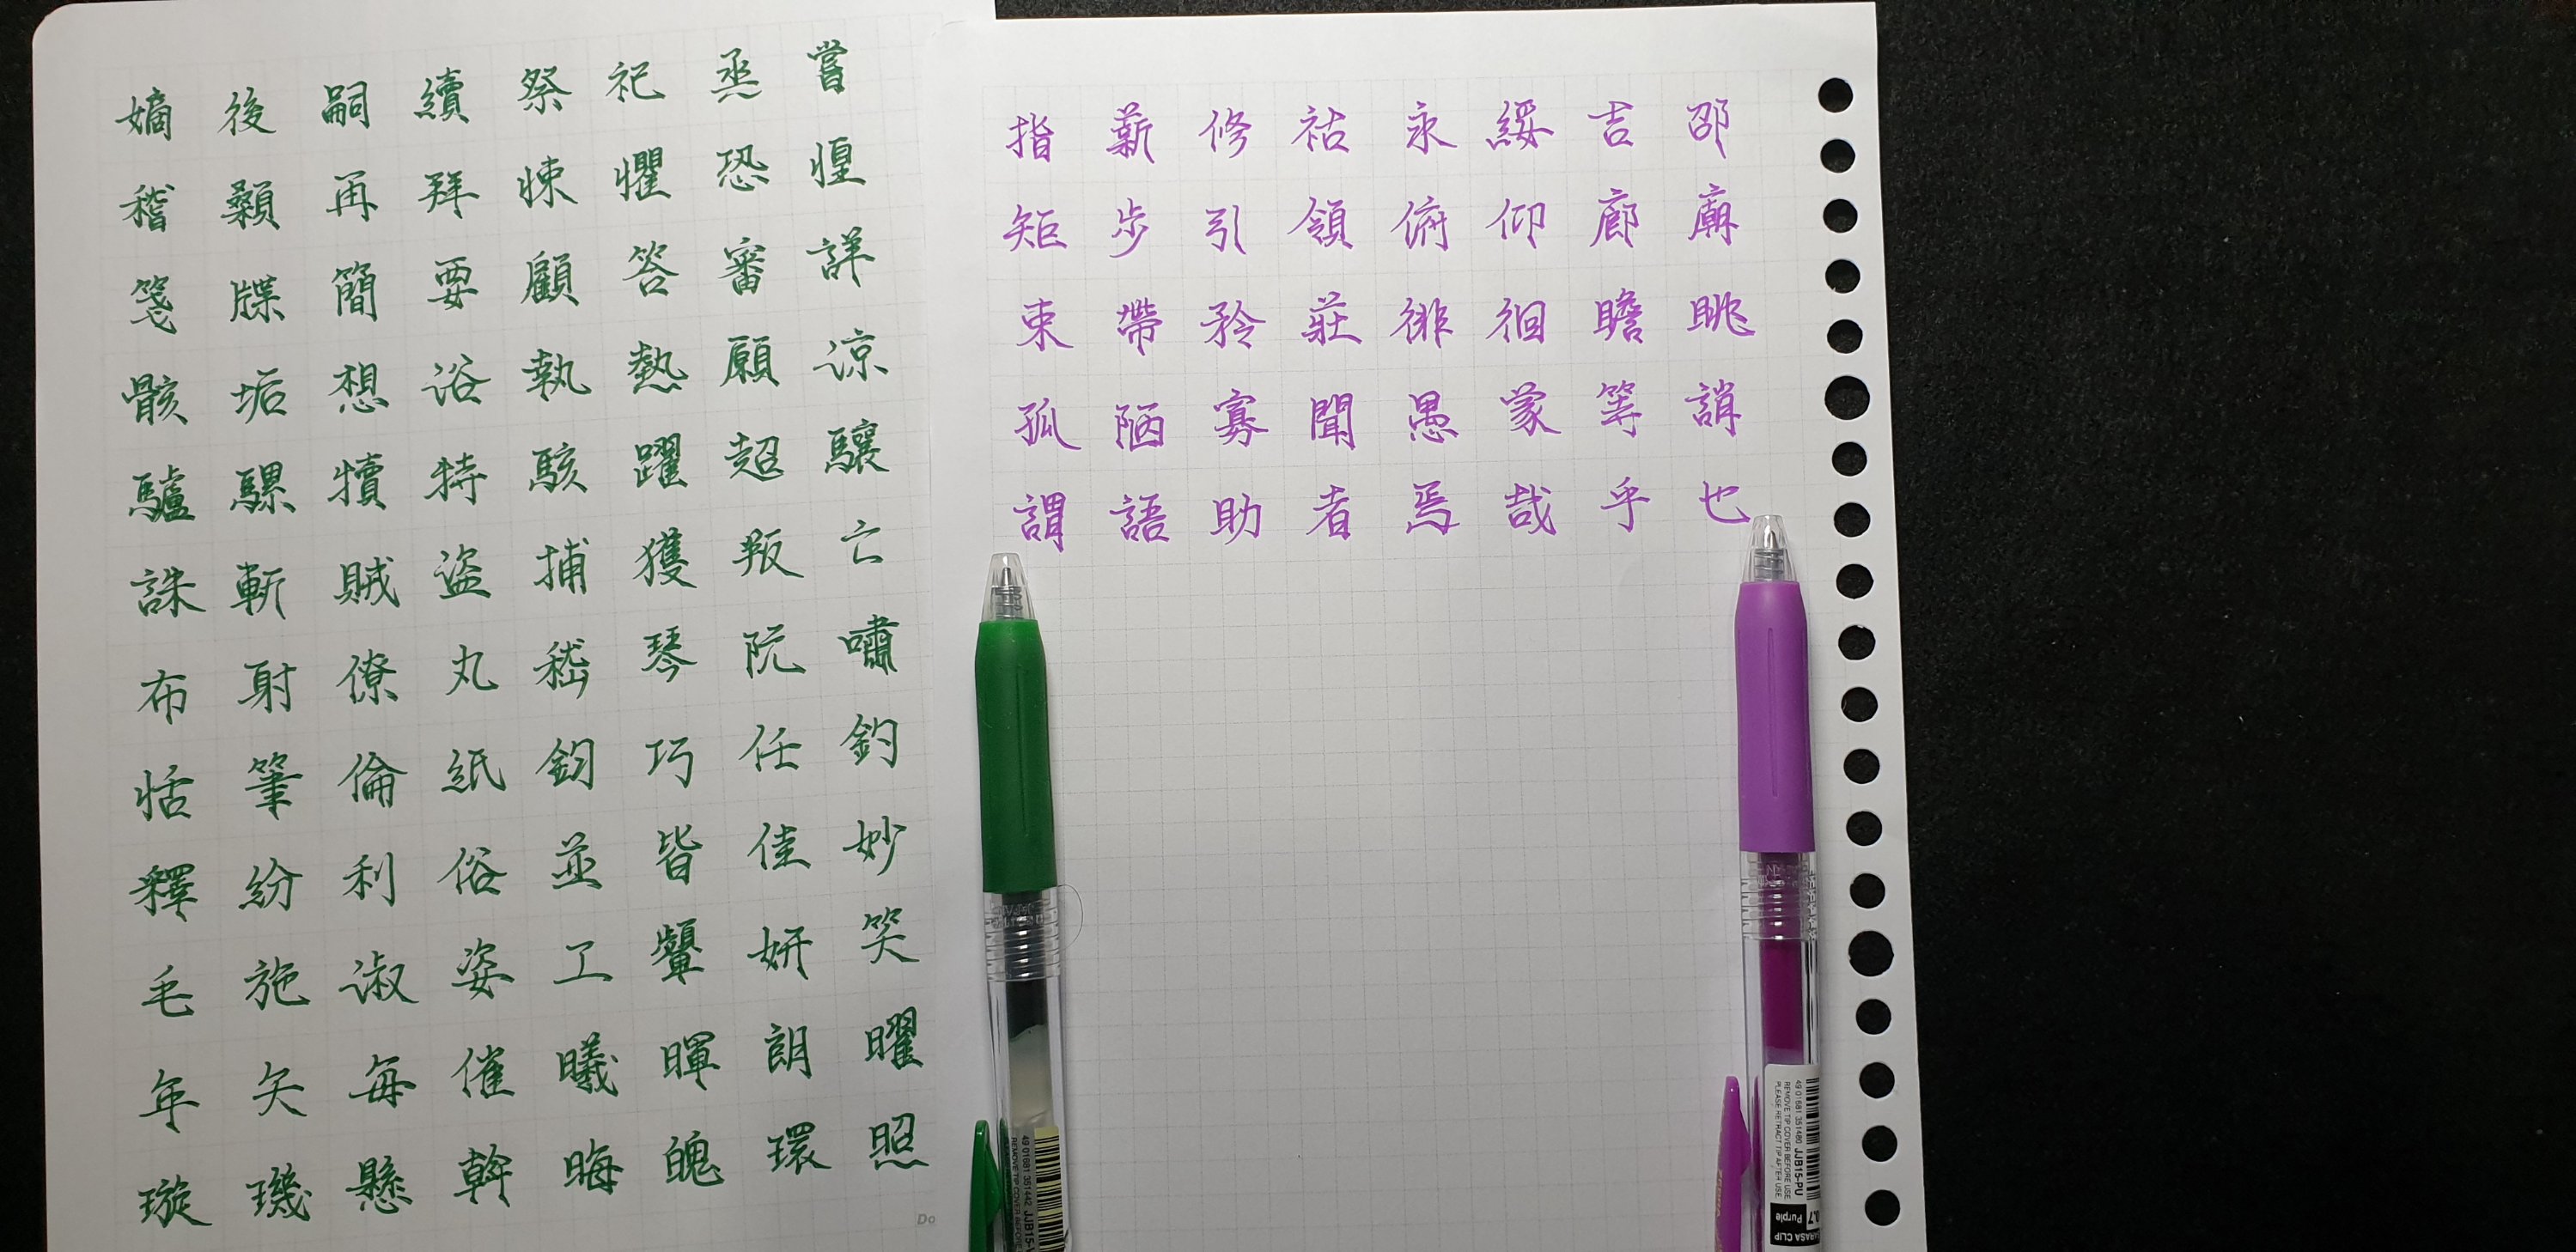 嫡後嗣續祭祀烝嘗
稽顙再拜悚懼恐惶
箋牒簡要顧答審詳
骸垢想浴執熱願涼
驢騾犢特駭躍超驤
誅斬賊盜捕獲叛亡
布射僚丸嵇琴阮嘯
恬筆倫紙鈞巧任釣
釋紛利俗並皆佳妙
毛施淑姿工顰妍笑
年矢每催曦暉朗曜
璇璣懸斡晦魄環照
指薪修祜永綏吉邵
矩步引領俯仰廊廟
束帶矜莊徘徊瞻眺
孤陋寡聞愚蒙等誚
謂語助者焉哉乎也
Do
49 01681 351442 JJB15-V
REMOVE TIP COVER BEFORE USE
49 01681 351480 JJB15-PU
REMOVE TIP COVER BEFORE USE.
PLEASE RETRACT TIP AFTER USE.
0.7 Purple
SARASA CLIP